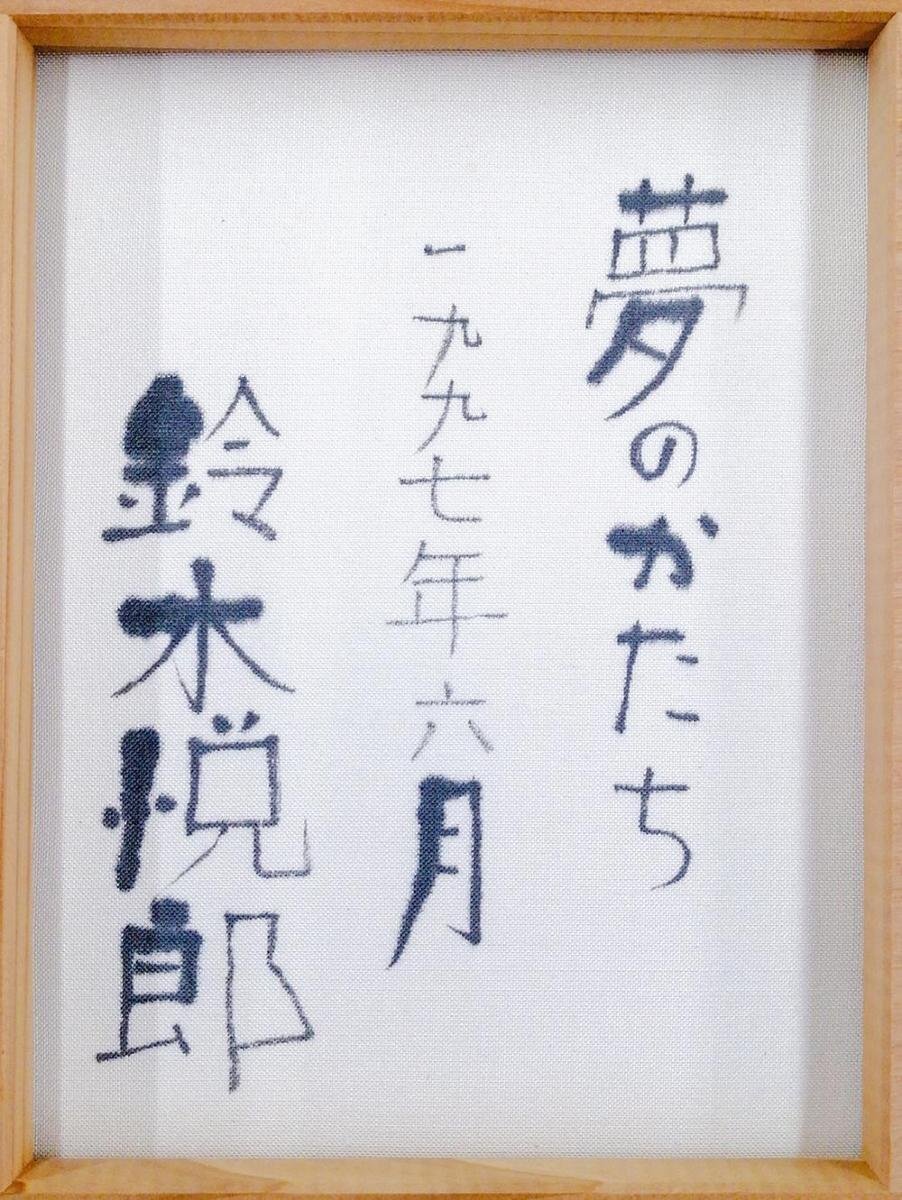 夢のかたち
一九九七年六月
鈴木悦郎